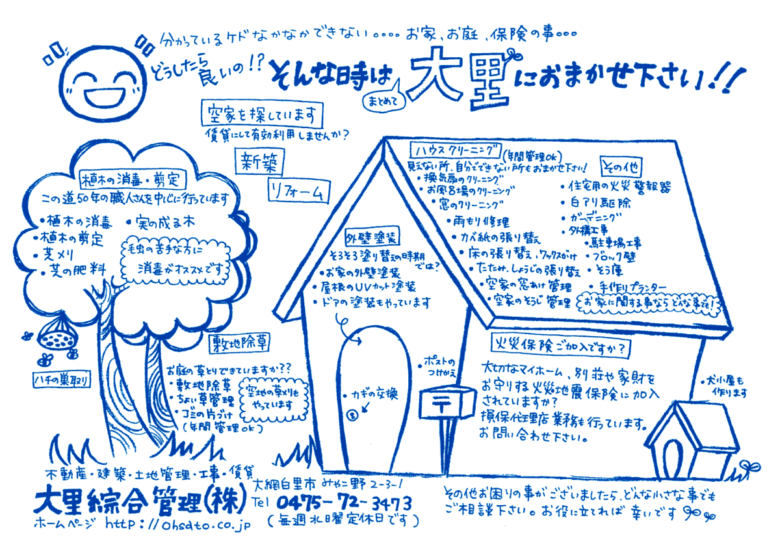 分かっているケドなかなかできない。。。。お家、お庭、保険の事。。。
どうしたら
良いの!?
そんな時は
まとめて
大里におまかせ下さい!!
空家を探しています
賃貸にして有効利用しませんか?
新築
リフォーム
植木の消毒・剪定
この道50年の職人さんを中心に行っています
・植木の消毒
・植木の剪定
・芝メリ
・芝の肥料
・実の成る木
毛虫の苦手な方に
消毒がオススメです
ハチの巣取り
敷地除草
お庭の草とりできていますか??
・敷地除草
・ちょい草管理
・ゴミの片づけ
(年間管理OK)
空地の草メリも
やっています
外壁塗装
そろそろ塗り替えの時期
では?
・お家の外壁塗装
・屋根のUVカット塗装
・ドアの塗装もやっています
・カギの交換
・ポストの
つけかえ
〒
ハウスクリーニング
(年間管理OK)
見えない所、自分でできない所もおまかせ下さい!
・換気扇のクリーニング
・お風呂場のクリーニング
・窓のクリーニング
・雨もり修理
・カベ紙の張り替え
・床の張り替え、ワックスがけ
・たたみ、しょうじの張り替え
・空家の窓あけ管理
・空家のそうじ管理
その他
・住宅用の火災警報器
・白アリ駆除
・ガーデニング
・外構工事
・駐車場工事
・ブロック壁
・そう庫
・手作りプランター
お家に関する事ならどんな事でも!
火災保険ご加入ですか?
大切なマイホーム、別荘や家財を
お守りする火災地震保険に加入
されていますか?
損保代理店業務も行っています。
お問い合わせ下さい。
・犬小屋も
作ります
不動産・建築・土地管理・工事・賃貸
大里綜合管理(株)
ホームページ http://ohsato.co.jp
大網白里市みやこ野2-3-1
Tel 0475-72-3473
(毎週水曜定休日です)
その他お困りの事がございましたら、どんな小さな事でも
ご相談下さい。お役に立てれば幸いです